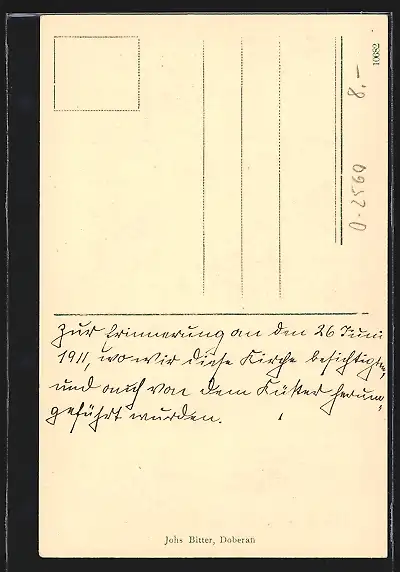 10682
8.–
0-2560
Zur Erinnerung an den 26 Juni
1911, wo wir diese Kirche besichtigten,
und auch von dem Küster herum-
geführt wurden.
Johs Bitter, Doberan